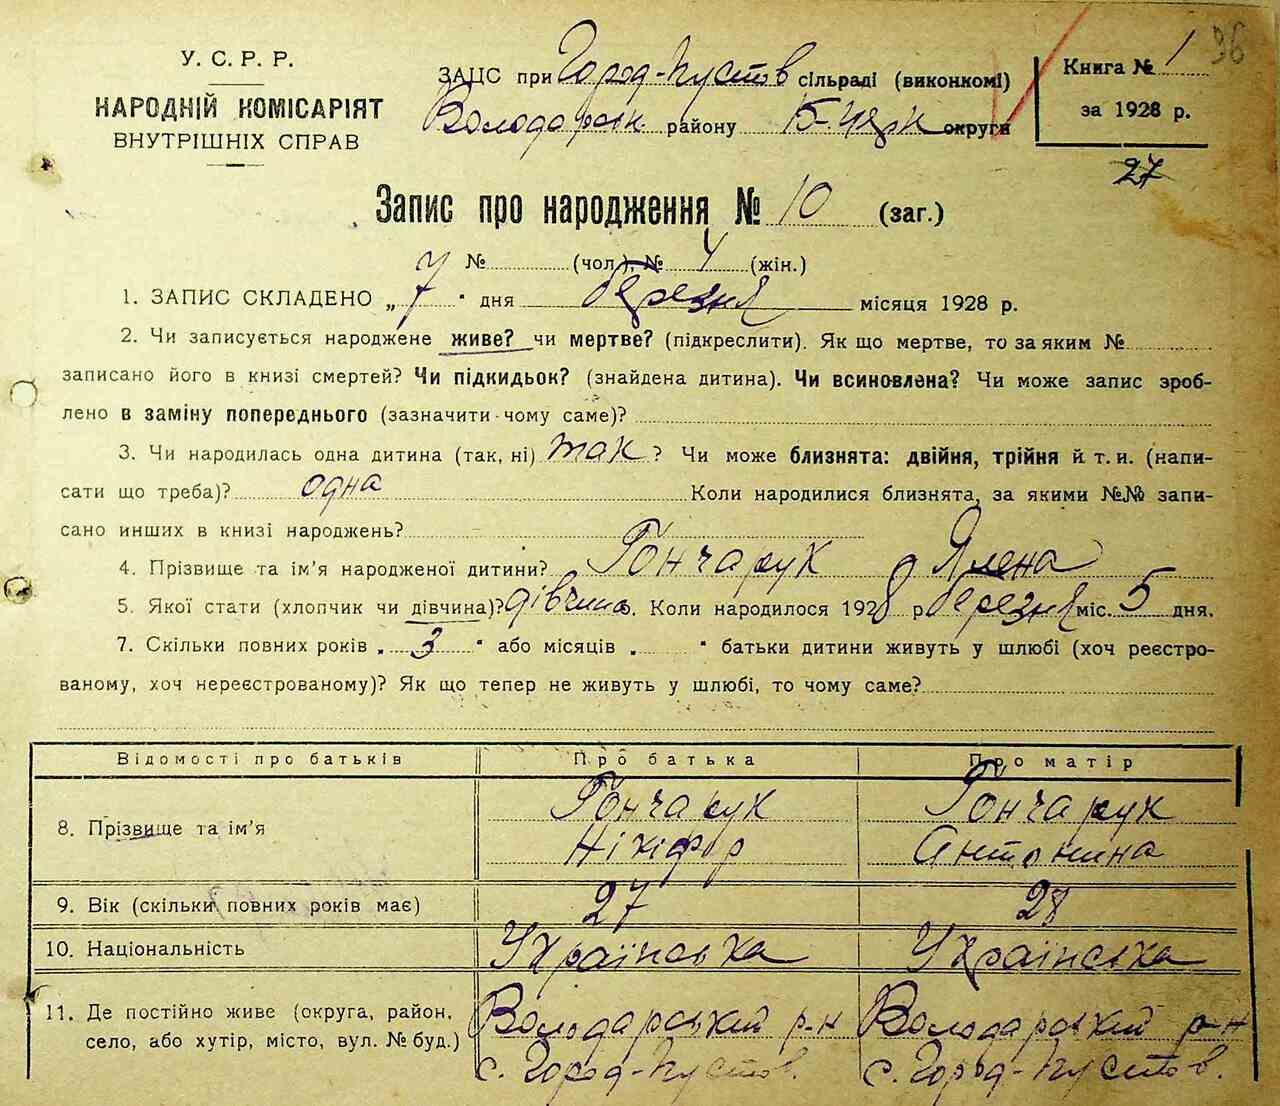 У. С. Р. Р.
НАРОДНІЙ КОМІСАРІЯТ
ВНУТРІШНІХ СПРАВ
ЗАЦС при Город-Пустов сільраді (виконкомі)
Володарськ. району Б-Церк округи
Книга № 1
за 1928 р.
36
27
Запис про народження № 10 (заг.)
№ (чол.), № 4 (жін.)
1. ЗАПИС СКЛАДЕНО „ 7 " дня березня місяця 1928 р.
2. Чи записується народжене живе? чи мертве? (підкреслити). Як що мертве, то за яким №
записано його в книзі смертей? Чи підкидьок? (знайдена дитина). Чи всиновлена? Чи може запис зроб-
лено в заміну попереднього (зазначити чому саме)?
3. Чи народилась одна дитина (так, ні) так ? Чи може близнята: двійня, трійня й т. и. (напи-
сати що треба)? одна Коли народилися близнята, за якими №№ запи-
сано инших в книзі народжень?
4. Прізвище та ім'я народженої дитини? Гончарук Ялена
5. Якої стати (хлопчик чи дівчина)? дівчина. Коли народилося 1928 р березня міс. 5 дня.
7. Скільки повних років „ 3 " або місяців „ " батьки дитини живуть у шлюбі (хоч реєстро-
ваному, хоч нереєстрованому)? Як що тепер не живуть у шлюбі, то чому саме?
Відомості про батьків Про батька Про матір
8. Прізвище та ім'я Гончарук Нікіфор Гончарук Антонина
9. Вік (скільки повних років має) 27 28
10. Національність Українська Українська
11. Де постійно живе (округа, район, Володарський р-н Володарський р-н
село, або хутір, місто, вул. № буд.) с. Город-Пустов. с. Город-Пустов.